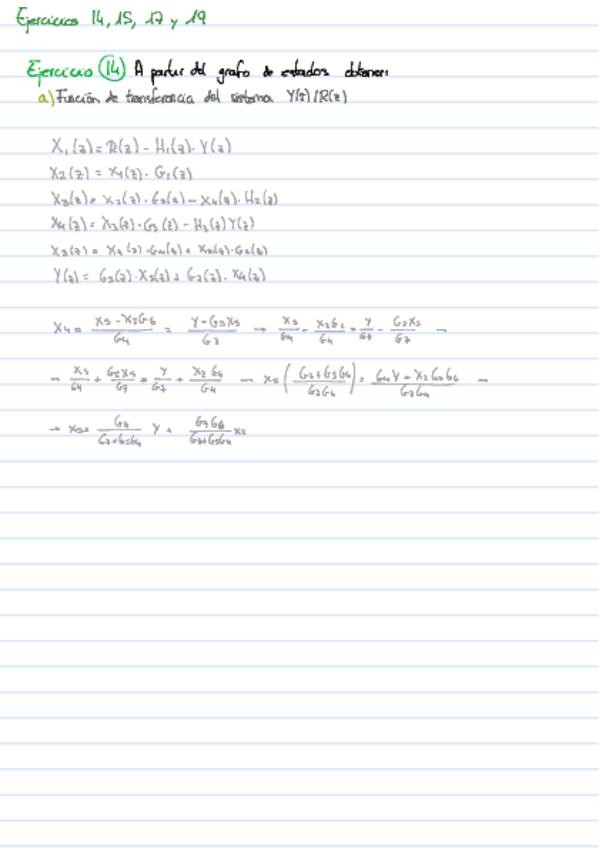 Ejercicios 14, 15, 17 y 19
Ejercicio 14 A partir del grafo de estados obtener:
a) Función de transferencia del sistema Y(z)/R(z)
X₁(z) = R(z) - H₁(z)·Y(z)
X₂(z) = X₁(z)·G₁(z)
X₃(z) = X₂(z)·G₂(z) - X₄(z)·H₂(z)
X₄(z) = X₃(z)·G₃(z) - H₃(z)Y(z)
X₅(z) = X₄(z)·G₄(z) + X₂(z)·G₆(z)
Y(z) = G₅(z)·X₅(z) + G₇(z)·X₄(z)
X₄ = (X₅ - X₂G₆)/G₄ = (Y - G₅X₅)/G₇ → X₅/G₄ - X₂G₆/G₄ = Y/G₇ - G₅X₅/G₇ →
→ X₅/G₄ + G₅X₅/G₇ = Y/G₇ + X₂G₆/G₄ → X₅((G₇+G₅G₄)/(G₇G₄)) = (G₄Y + X₂G₇G₆)/(G₇G₄) →
→ X₅ = G₄/(G₇+G₅G₄) Y + G₇G₆/(G₇+G₅G₄) X₂